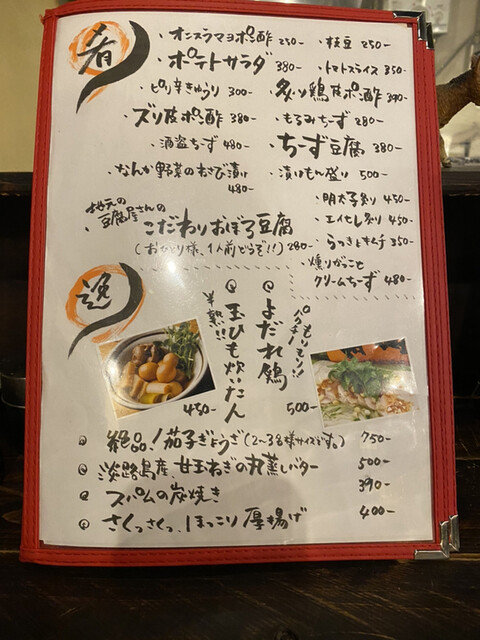 肴
・オニスラマヨポン酢 250-
・枝豆 250-
・ポテトサラダ 380-
・トマトスライス 350-
・ピリ辛きゅうり 300-
・炙り鶏皮ポン酢 390-
・ズリ皮ポン酢 380-
・もろみちーず 280-
・酒盗ちーず 480-
・ちーず豆腐 380-
・なんか野菜のわさび漬け 480-
・漬けもん盛り 500-
・明太子炙り 450-
・エイヒレ炙り 450-
・地元の豆腐屋さんの
こだわりおぼろ豆腐
(おひとり様、1人前どうぞ!!) 280-
・らっきょキムチ 350-
・燻りがっこと
クリームちーず 480-
逸
パクチーもりもり!!
よだれ鶏
500-
半熟!!
玉ひも炊いたん
450-
絶品!茄子ぎょうざ(2〜3名様サイズです。) 750-
淡路島産、甘玉ねぎの丸蒸しバター 500-
スパムの炭焼き 390-
さくっさくっ、ほっこり厚揚げ 400-